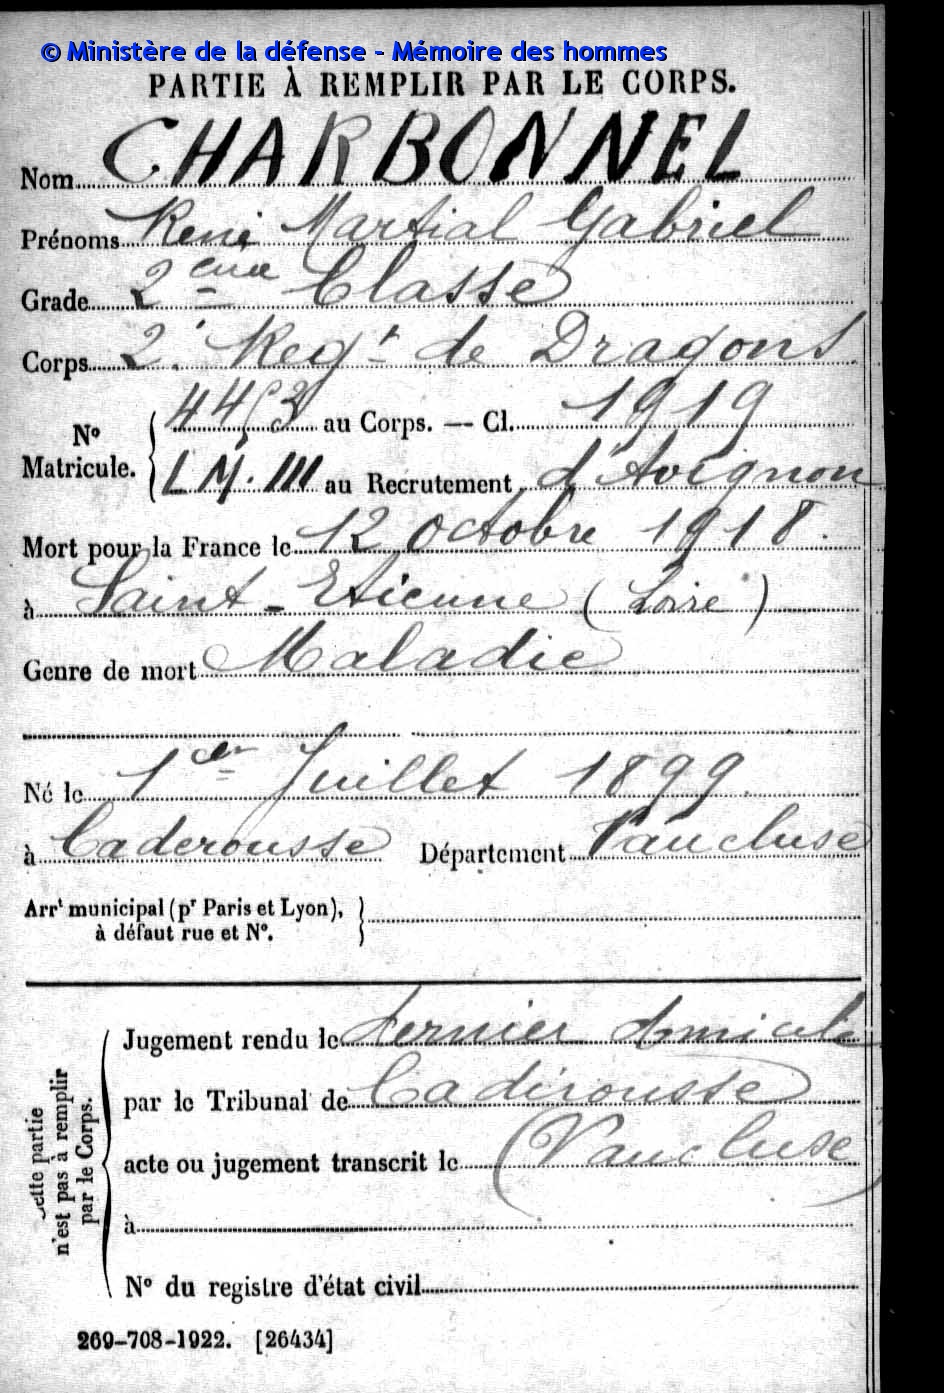 © Ministère de la défense - Mémoire des hommes
PARTIE À REMPLIR PAR LE CORPS.
Nom CHARBONNEL
Prénoms René Martial Gabriel
Grade 2eme Classe
Corps 2e Regt de Dragons
No Matricule. { 4453 au Corps. — Cl. 1919
L M. III au Recrutement d'Avignon
Mort pour la France le 12 Octobre 1918.
à Saint-Etienne (Loire)
Genre de mort Maladie
Né le 1er Juillet 1899
à Caderousse Département Vaucluse
Arrt municipal (pr Paris et Lyon), }
à défaut rue et No.
Cette partie
n'est pas à remplir
par le Corps.
Jugement rendu le dernier domicile
par le Tribunal de Cadérousse
acte ou jugement transcrit le (Vaucluse)
à
No du registre d'état civil
269-708-1922. [26434]